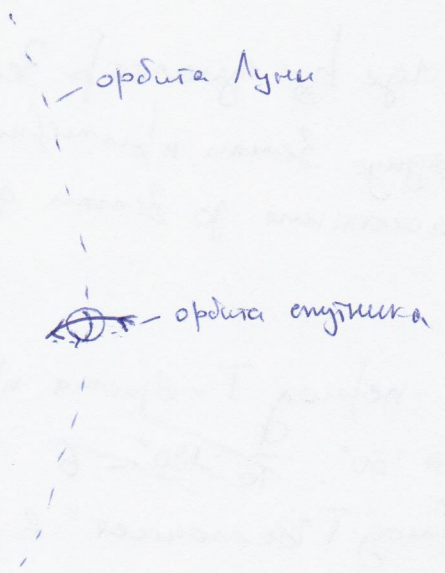 орбита Луны
орбита спутника